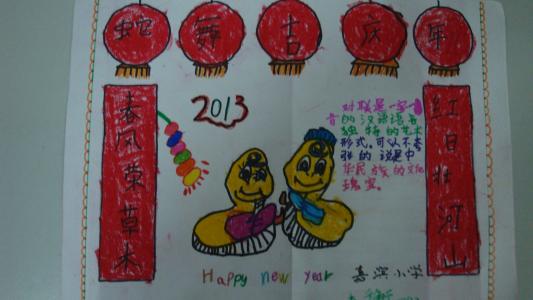 蛇舞吉庆年
春风荣草木
2013
对联是一字一
音的汉语语言
独特的艺术
形式。可以不夸
张的说是中
华民族的文化
瑰宝。
红日壮河山
Happy new year
嘉滨小学